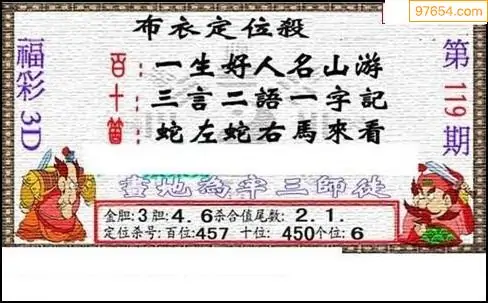 97654.com
布衣定位殺
福彩3D
百：一生好人名山游
十：三言二語一字記
個：蛇左蛇右馬來看
第119期
畫地為牢三師徒
金胆:3胆:4.6杀合值尾数: 2.1.
定位杀号:百位:457 十位: 450个位:6